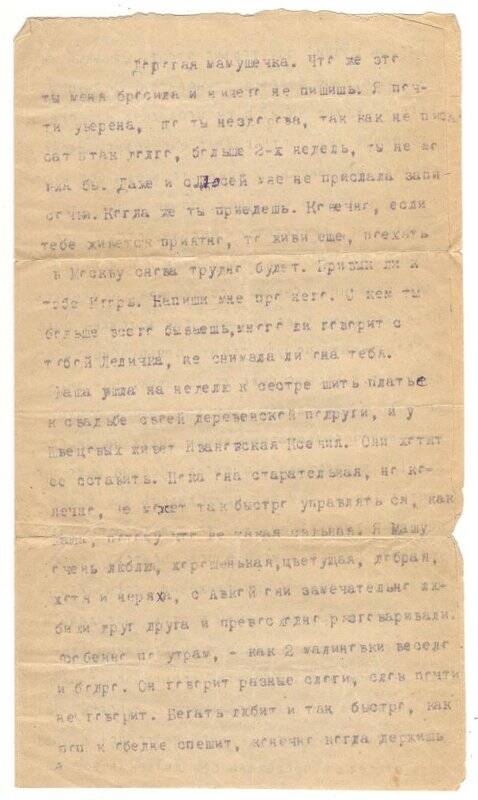 Дорогая мамушечка. Что же это
ты меня бросила и ничего не пишишь. Я поч-
ти уверена, что ты нездорова, так как не писа
сать так долго, больше 2-х недель, ты не мо
гла бы. Даже и с Люсей мне не прислала запи
сочки. Когда же ты приедешь. Конечно, если
тебе живется приятно, то живи еще, поехать
в Москву снова трудно будет. Привык ли к
тебе Игорь. Напиши мне про него. С кем ты
больше всего бываешь, много ли говорит с
тобой Леличка, не снимала ли она тебя.
Маша ушла на неделю к сестре шить платье
к свадьбе своей деревенской подруги, и у
Швецовых живет Ивановская Ксения. Они хотят
ее оставить. Пока она старательная, но ко-
нечно, не может так быстро управляться, как
Маша, потому что не такая сильная. Я Машу
очень люблю, хорошенькая, цветущая, добрая,
хотя и неряха, с Авкой они замечательно лю-
били друг друга и превосходно разговаривали.
особенно по утрам, - как 2 малиновки весело
и бодро. Он говорит разные слоги, слов почти
не говорит. Бегать любит и так быстро, как
поп к обедне спешит, конечно когда держишь